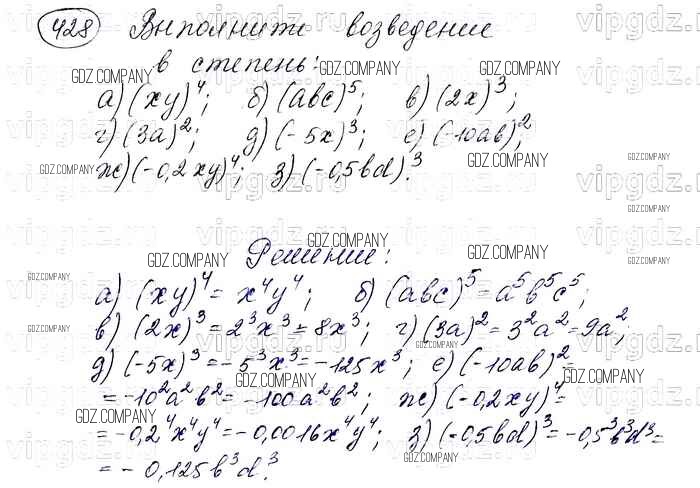 428 Выполнить возведение
в степень:
а) (xy)⁴; б) (abc)⁵; в) (2x)³;
г) (3a)²; д) (-5x)³; е) (-10ab)²;
ж) (-0,2xy)⁴; з) (-0,5bd)³.
Решение:
а) (xy)⁴ = x⁴y⁴; б) (abc)⁵ = a⁵b⁵c⁵;
в) (2x)³ = 2³x³ = 8x³; г) (3a)² = 3²a² = 9a²;
д) (-5x)³ = -5³x³ = -125x³; е) (-10ab)² =
= -10²a²b² = -100a²b²; ж) (-0,2xy)⁴ =
= -0,2⁴x⁴y⁴ = -0,0016x⁴y⁴; з) (-0,5bd)³ = -0,5³b³d³ =
= -0,125b³d³.
GDZ.COMPANY
vipgdz.ru